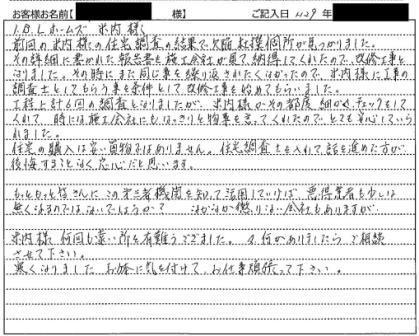 お客様お名前【 様】 ご記入日 11.29 年
I.B.Lホームズ 米内 様
前回の米内様の住宅調査の結果で欠陥、杜撰個所が見つかりました。
その詳細に書かれた報告書を施工会社が見て、納得してくれたので、改修工事と
なりました。その時にまた同じ事を繰り返されたくなかったので、米内様に工事の
調査士としてもらう事を条件として改修工事を始めてもらいました。
工程上計6回の調査となりましたが、米内様がその都度、細かくチェックをして
くれて、時には施工会社にもはっきりと物事を言ってくれたのでとても安心していら
れました。
住宅の購入は安い買物ではありません。住宅調査士を入れて話を進めた方が、
後悔することなく安心だと思います。
もっともっと皆さんにこの第三者機関を知って活用していけば、悪得業者も少しは
無くなるのではないでしょうか? なかなか懲りない会社もありますが…
米内様、何回も遠い所を有難うございました。又、何かありましたら、ご相談
させて下さい。
寒くなりました。お体に気を付けて、お仕事頑張って下さい。